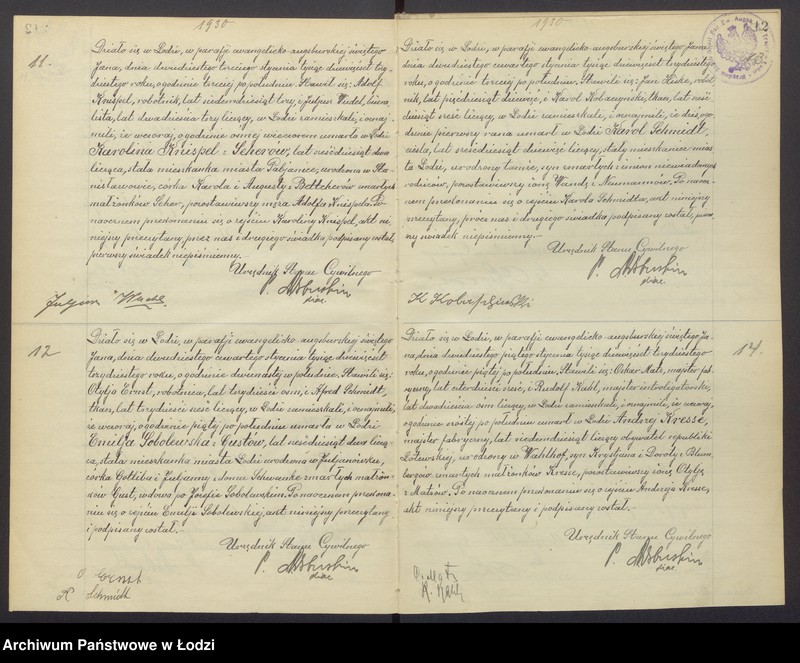 1930
11.
Działo się w Łodzi, w parafji ewangelicko-augsburskiej świętego
Jana, dnia dwudziestego trzeciego stycznia tysiąc dziewięćset trzy-
dziestego roku, o godzinie trzeciej po południu. Stawili się: Adolf
Knispel, robotnik, lat siedemdziesiąt trzy, i Juljan Wudel,
lat dwadzieścia trzy liczący, w Łodzi zamieszkali, i oznaj-
mili, że wczoraj, o godzinie ósmej wieczorem umarła w Łodzi
Karolina Knispel z Scherów, lat sześćdziesiąt dwa
licząca, stała mieszkanka miasta Pabjanic, urodzona w Sta-
nisławowie, córka Karola i Augusty z Bettcherów umarłych
małżonków Scher, pozostawiwszy męża Adolfa Knispla. Po
naocznem przekonaniu się o zejściu Karoliny Knispel, akt ni-
niejszy przeczytany, przez nas i drugiego świadka podpisany został,
pierwszy świadek niepiśmienny.
Urzędnik Stanu Cywilnego
12
Działo się w Łodzi, w parafji ewangelicko-augsburskiej świętego
Jana, dnia dwudziestego czwartego stycznia tysiąc dziewięćset
trzydziestego roku, o godzinie dwunastej w południe. Stawili się:
Otylja Ernst, robotnica, lat trzydzieści osm, i Alfred Schmidt,
tkacz, lat trzydzieści sześć liczący, w Łodzi zamieszkali, i oznajmili,
że wczoraj, o godzinie piątej po południu umarła w Łodzi
Emilja Sobolewska z Gustów, lat sześćdziesiąt dwa liczą-
ca, stała mieszkanka miasta Łodzi urodzona w Juljanówku,
córka Gottliba i Juljanny z domu Schwanke zmarłych małżon-
ków Gust, wdowa po Józefie Sobolewskim. Po naocznem przekona-
niu się o zejściu Emilji Sobolewskiej, akt niniejszy przeczytany
i podpisany został.
Urzędnik Stanu Cywilnego
O Ernst
Schmidt
1930
Działo się w Łodzi, w parafji ewangelicko-augsburskiej świętego Jana,
dnia dwudziestego czwartego stycznia tysiąc dziewięćset trzydziestego
roku, o godzinie trzeciej po południu. Stawili się: Jan Heike, robot-
nik, lat pięćdziesiąt dziewięć, i Karol Kobaczynski, tkacz, lat sześć-
dziesiąt sześć liczący, w Łodzi zamieszkali, i oznajmili, że dziś, o go-
dzinie pierwszej rano umarł w Łodzi Karol Schmidt,
cieśla, lat sześćdziesiąt dziewięć liczący, stały mieszkaniec mias-
ta Łodzi, urodzony tamże, syn zmarłych z imion niewiadomych
rodziców, pozostawiwszy żonę Wandę z Neumannów. Po naocz-
nem przekonaniu się o zejściu Karola Schmidta, akt niniejszy
przeczytany, przez nas i drugiego świadka podpisany został, pierw-
szy świadek niepiśmienny.
Urzędnik Stanu Cywilnego
14.
Działo się w Łodzi, w parafji ewangelicko-augsburskiej świętego Ja-
na, dnia dwudziestego piątego stycznia tysiąc dziewięćset trzydziestego
roku, o godzinie piątej po południu. Stawili się: Oskar Matz, majster
lat czterdzieści sześć, i Rudolf Kahl, majster introligatorski,
lat dwadzieścia osm liczący, w Łodzi zamieszkali, i oznajmili, że wczoraj,
o godzinie szóstej po południu umarł w Łodzi Andrzej Kresse,
majster fabryczny, lat siedemdziesiąt liczący obywatel republiki
Łotewskiej, urodzony w Wahlhof, syn Krystjana i Doroty z Blum-
bergów zmarłych małżonków Kresse, pozostawiwszy żonę Otylję
z Matzów. Po naocznem przekonaniu się o zejściu Andrzeja Kresse,
akt niniejszy przeczytany i podpisany został.
Urzędnik Stanu Cywilnego
Archiwum Państwowe w Łodzi